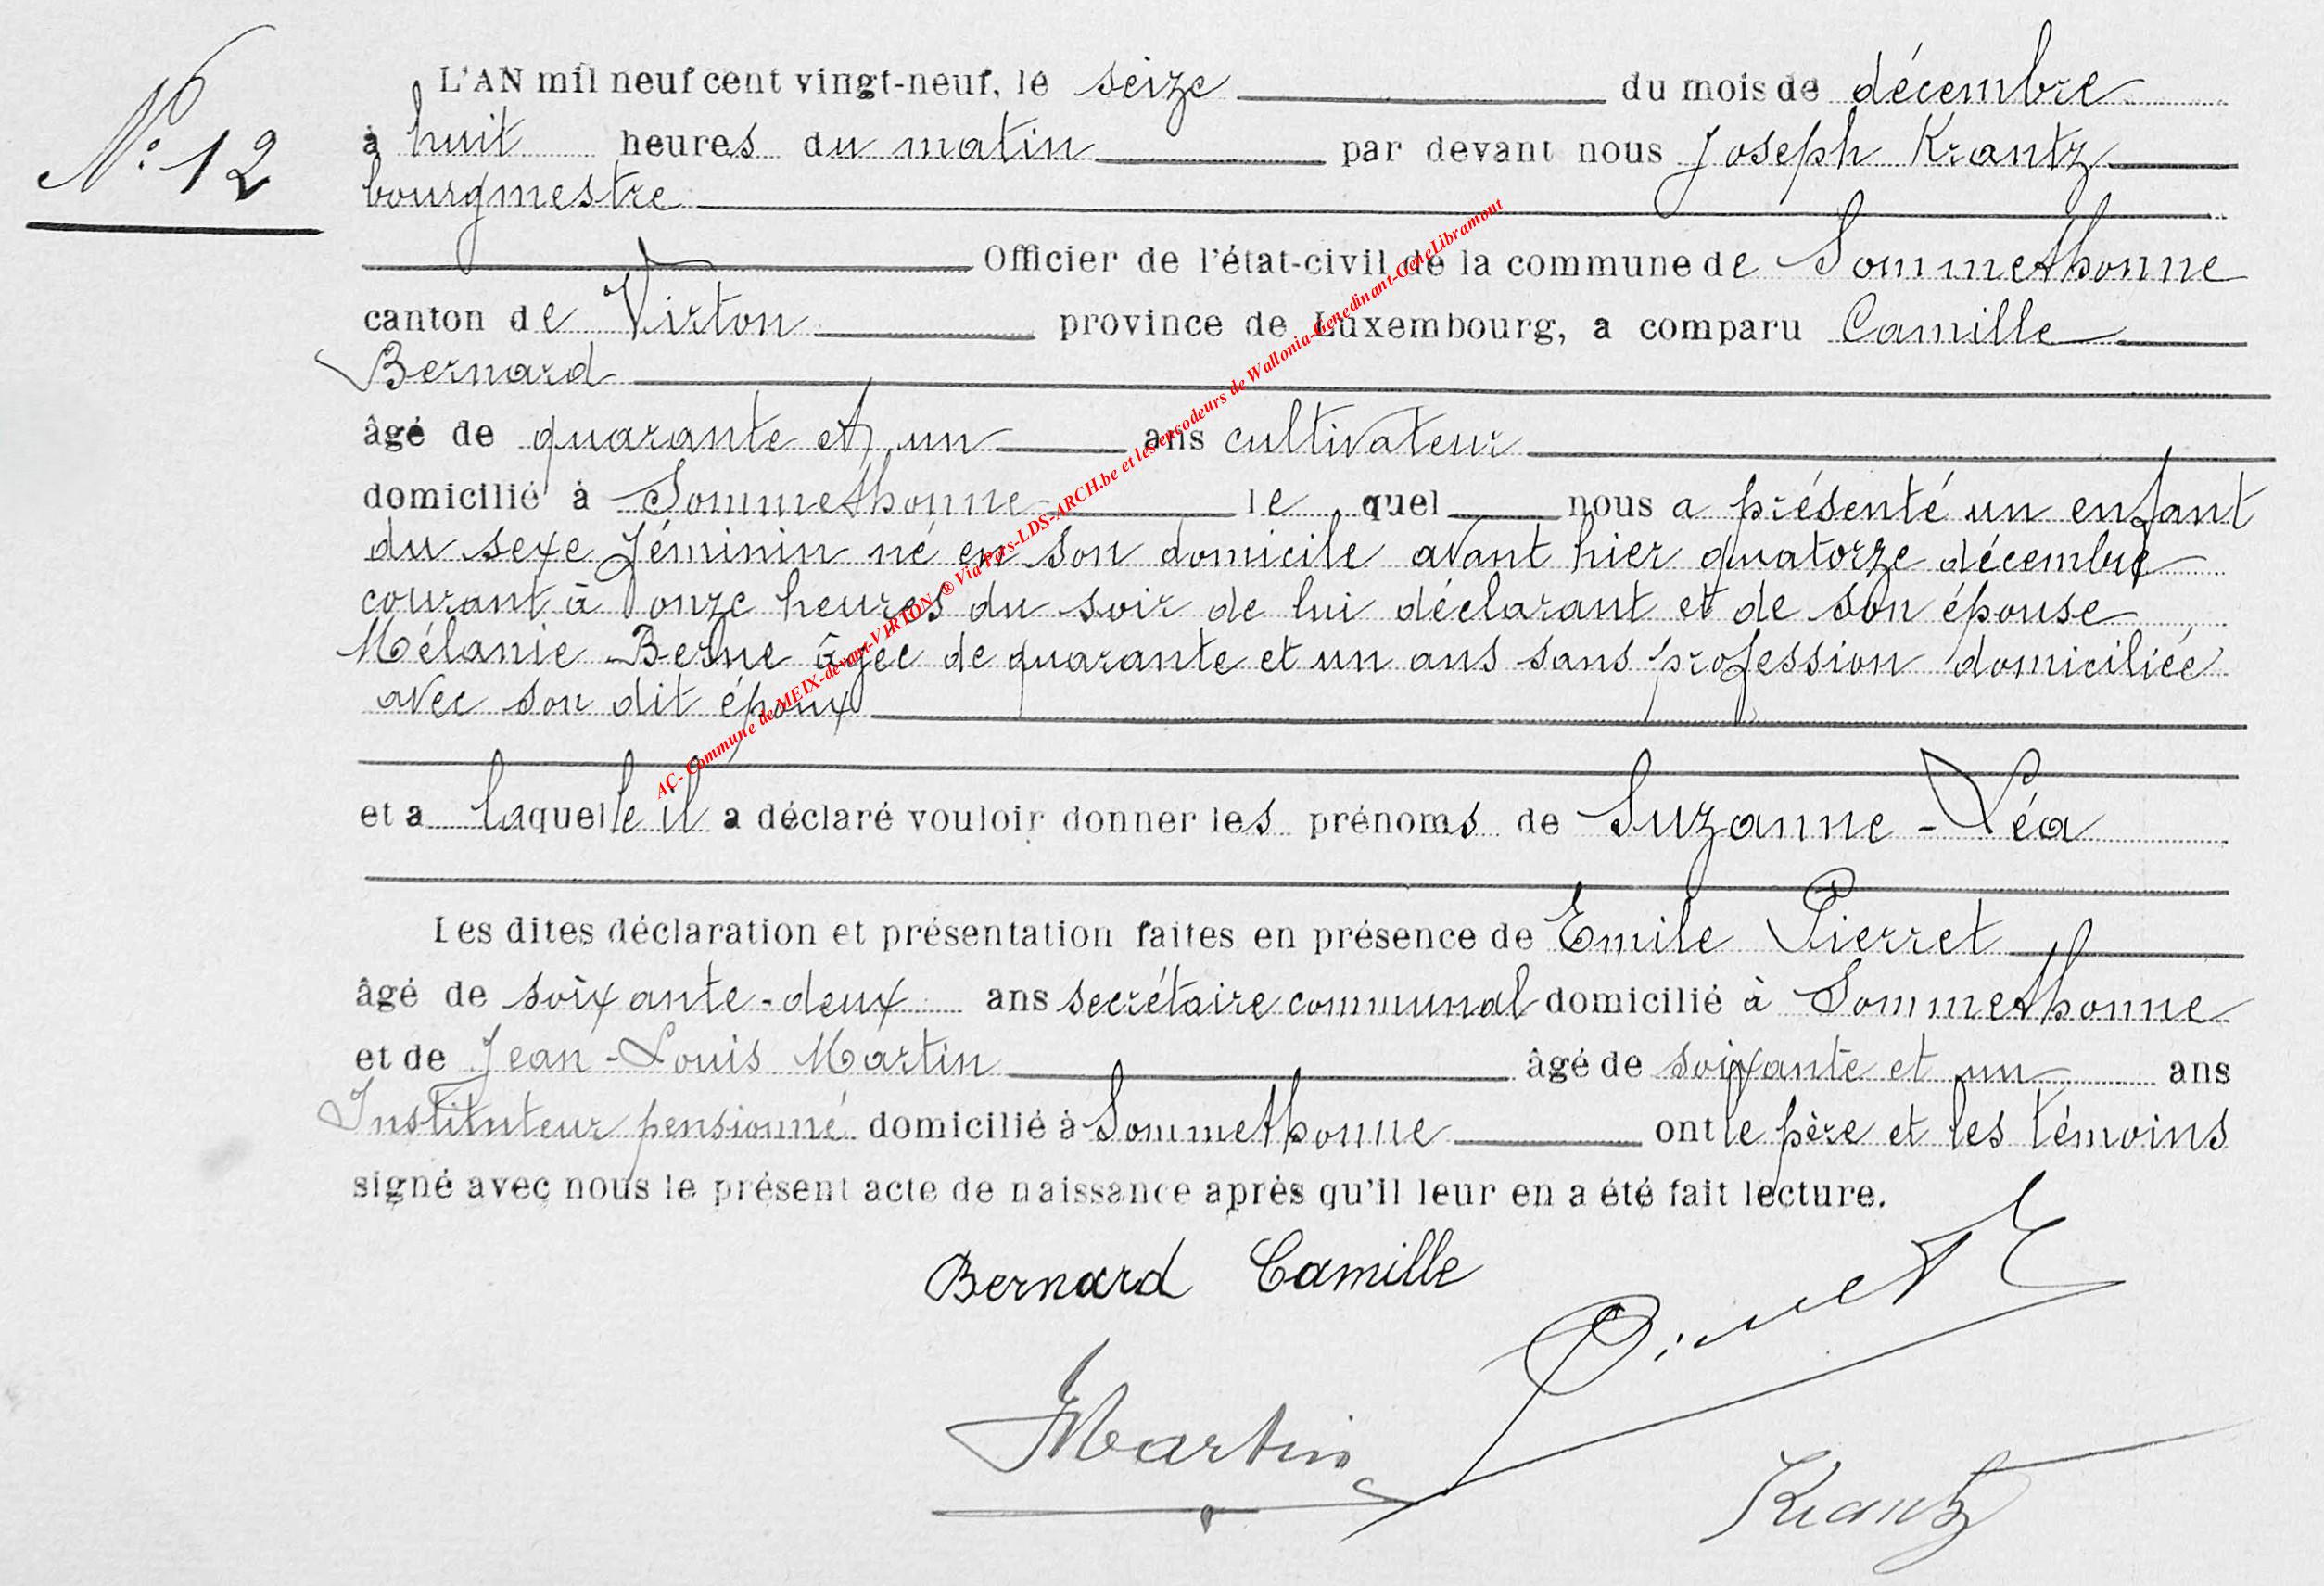 N° 12
L'AN mil neuf cent vingt-neuf, le seize du mois de décembre
à huit heures du matin par devant nous Joseph Krantz
bourgmestre
Officier de l'état-civil de la commune de Sommethonne
canton de Virton province de Luxembourg, a comparu Camille
Bernard
âgé de quarante et un ans cultivateur
domicilié à Sommethonne lequel nous a présenté un enfant
du sexe féminin né en son domicile avant hier quatorze décembre
courant à onze heures du soir de lui déclarant et de son épouse
Mélanie Berne âgée de quarante et un ans sans profession domiciliée
avec son dit époux
et a laquelle il a déclaré vouloir donner les prénoms de Suzanne-Léa
Les dites déclaration et présentation faites en présence de Emile Pierret
âgé de soixante-deux ans secrétaire communal domicilié à Sommethonne
et de Jean-Louis Martin âgé de soixante et un ans
Instituteur pensionné domicilié à Sommethonne ont le père et les témoins
signé avec nous le présent acte de naissance après qu'il leur en a été fait lecture.
Bernard Camille
Martin
Krantz
AC- Commune de MEIX-devant-VIRTON ® Via Pters-LDS-ARCH.be et les encodeurs de Wallonia-Genedinant-GeneLibramont